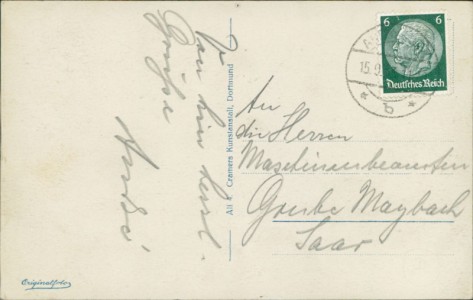 Von hier herzl.
Grüße
André
Cramers Kunstanstalt, Dortmund
6 6
Deutsches Reich
15.9.
b
An
die Herren
Maschinenbeamten
Grube Maybach
Saar
Originalfoto